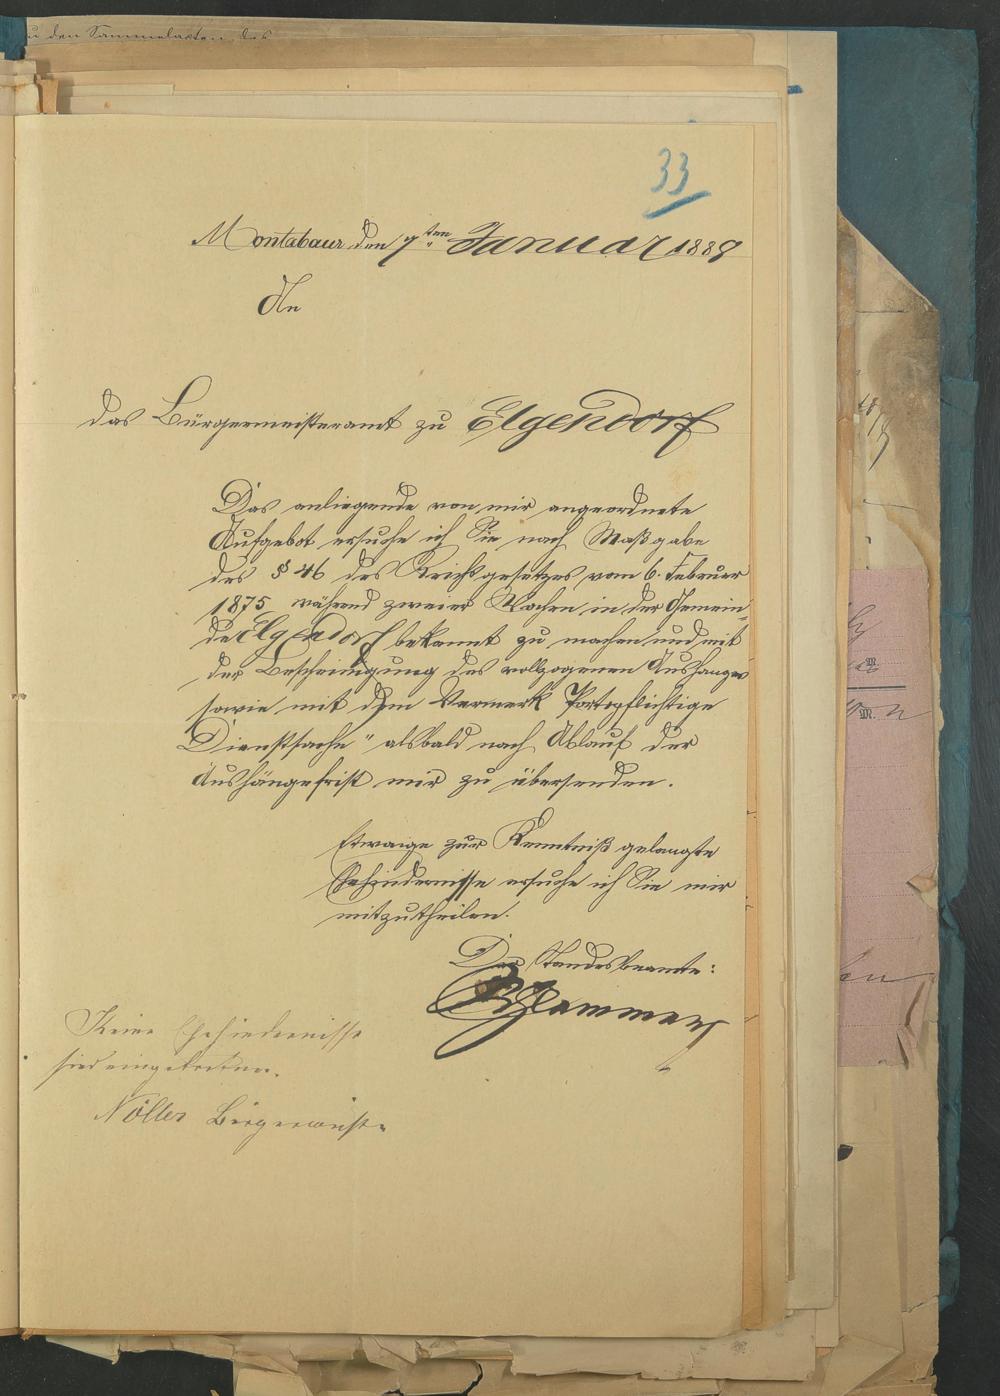 zu den Sammelakten des
33
Montabaur den 7ten Januar 1889
An
das Bürgermeisteramt zu Elgendorf
Das anliegende von mir angeordnete
Aufgebot ersuche ich Sie nach Maßgabe
des § 46 des Reichsgesetzes vom 6. Februar
1875 während zweier Wochen in der Gemein-
de Elgendorf bekannt zu machen und mit
der Bescheinigung des vollzogenen Aushanges
sowie mit dem Vermerk Portopflichtige
Dienstsache" alsbald nach Ablauf der
Aushängefrist mir zu übersenden.
Etwaige zur Kenntniß gelangte
Ehehindernisse ersuche ich Sie mir
mitzutheilen.
Der Standesbeamte:
Keine Ehehindernisse
sind eingetreten.
Nöller Bürgermeister